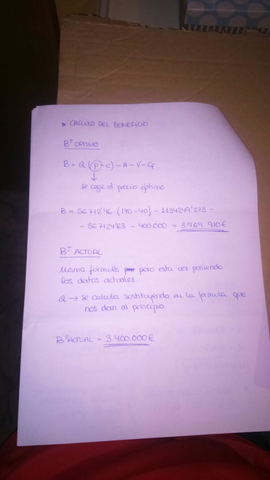 * CALCULO DEL BENEFICIO
Bº OPTIMO
B = Q (p - c) - A - V - CF
↓
se coge el precio optimo
- 400.000 = 3.969.910€
Bº ACTUAL
Misma formula pero esta vez poniendo
los datos actuales
Q → se calcula sustituyendo en la formula que
nos dan al principio
Bº ACTUAL = 3.400.000€